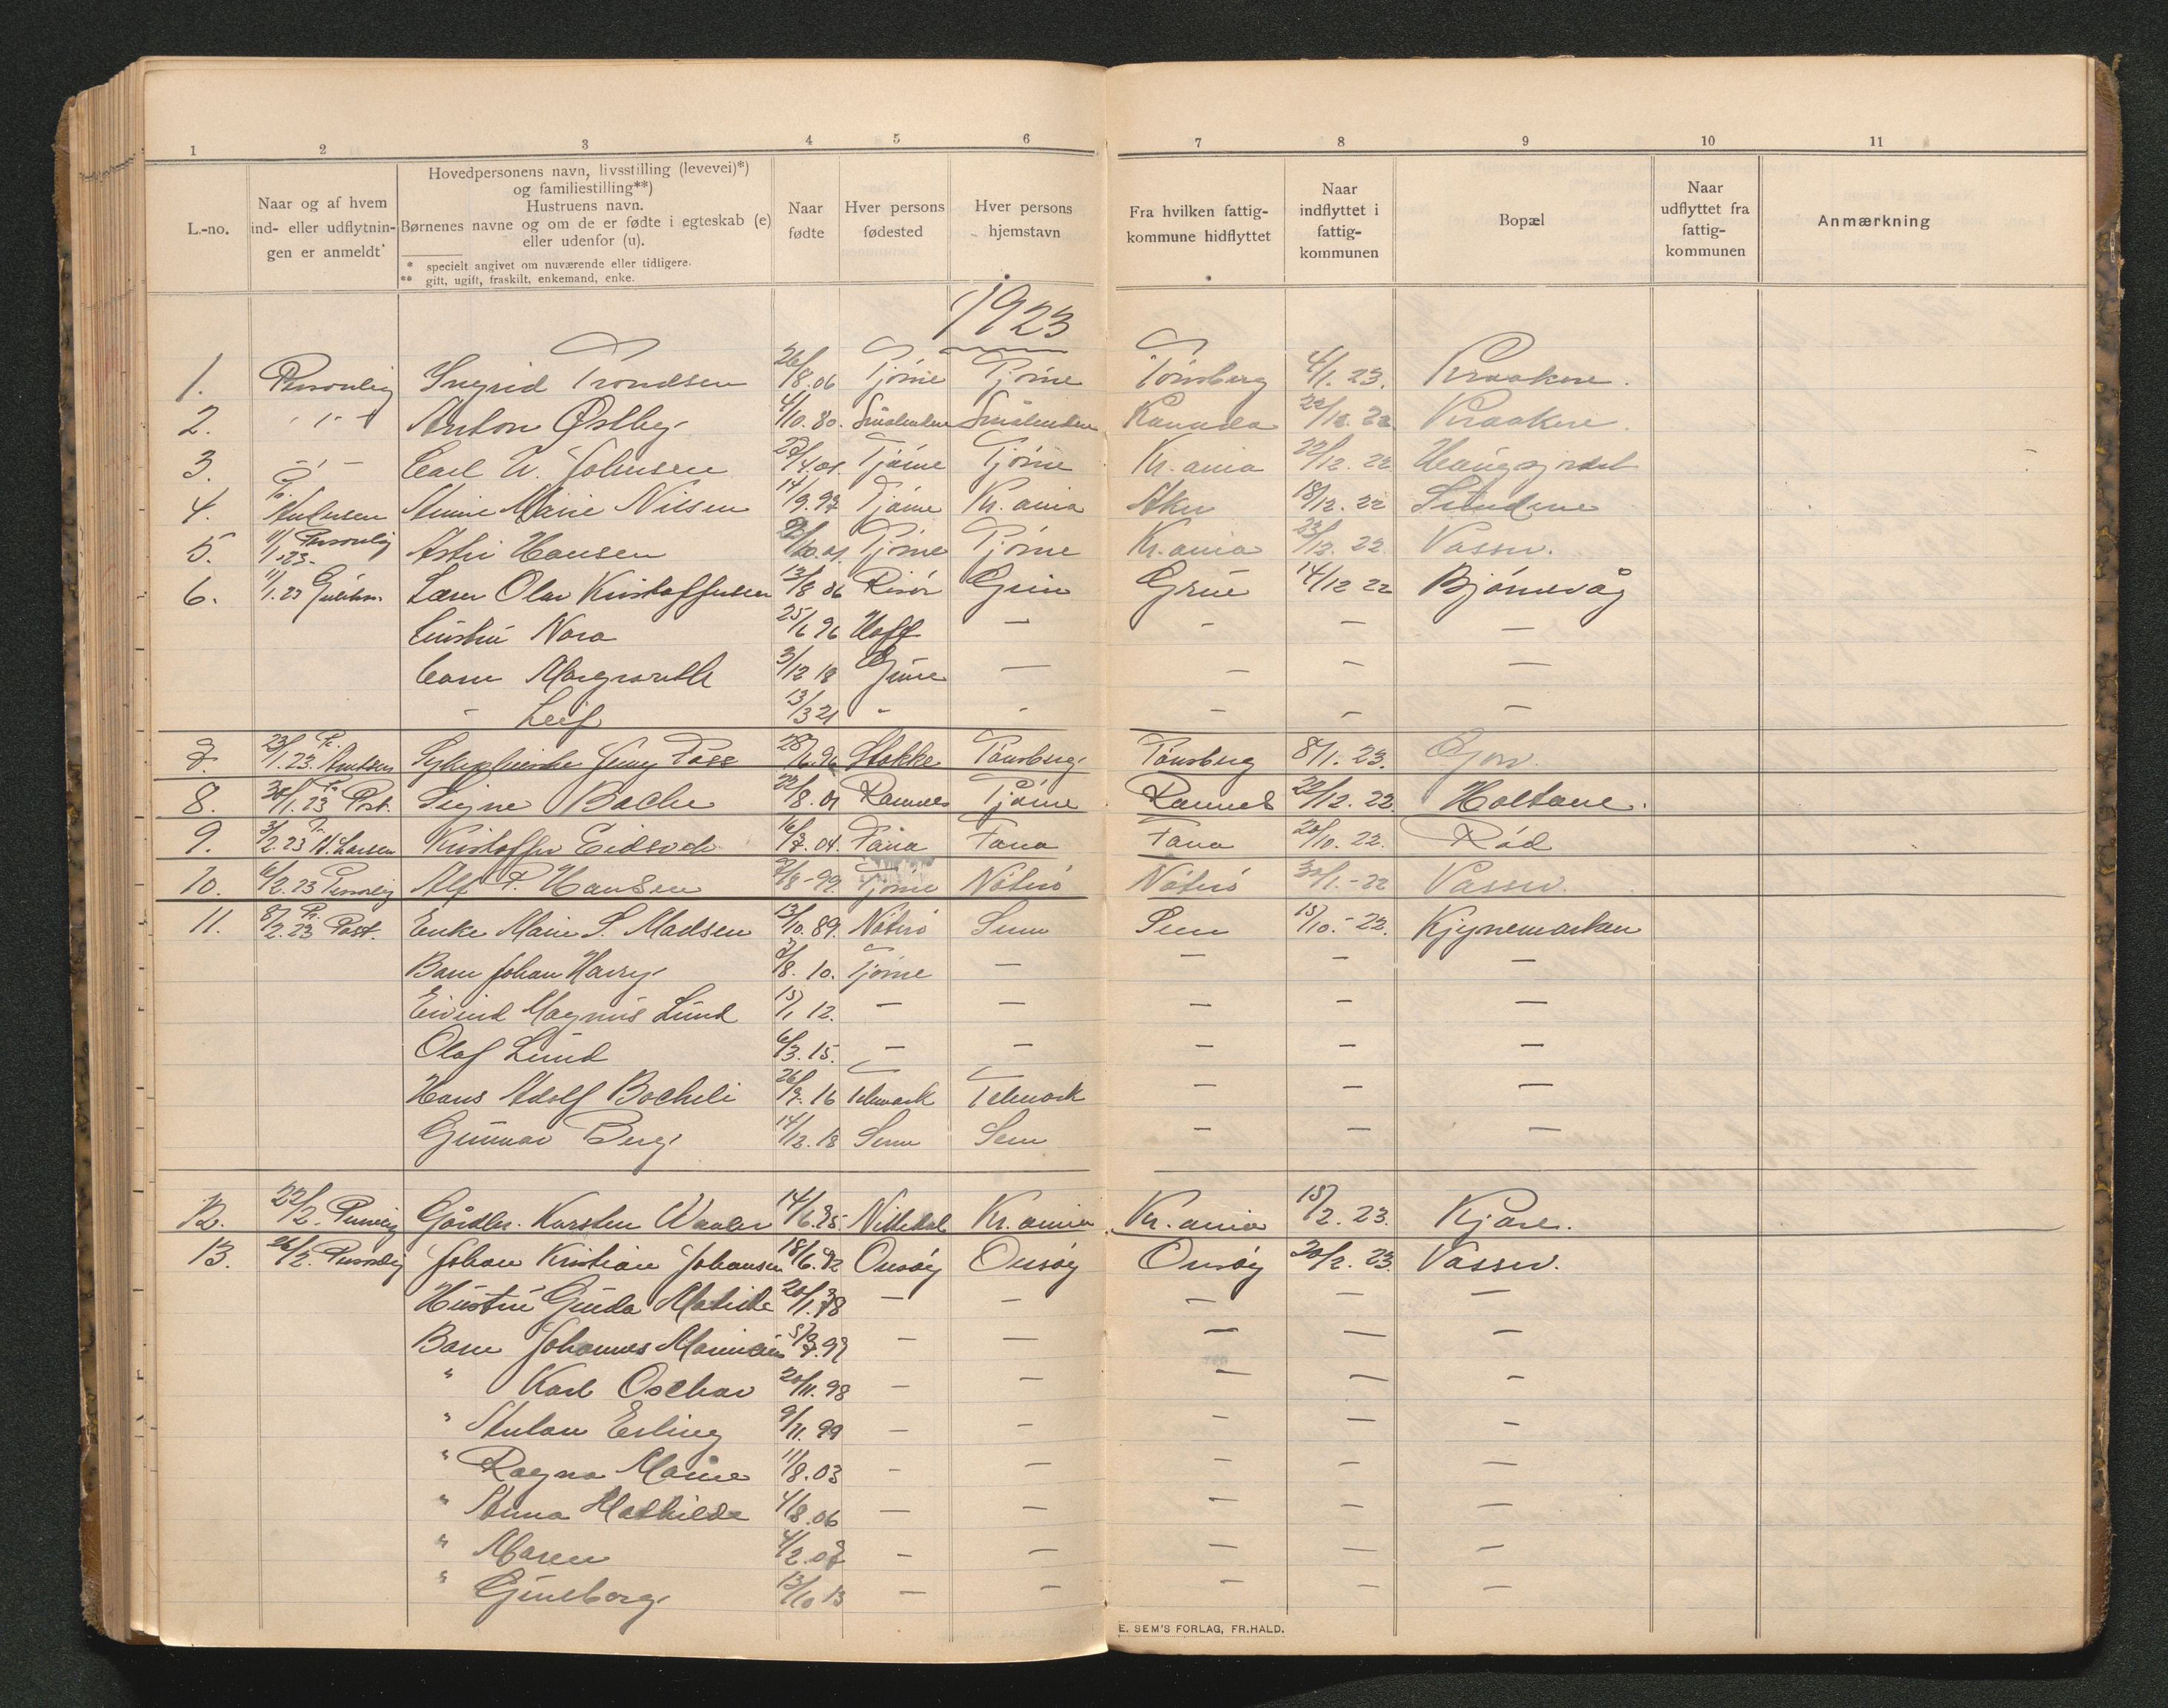 1 2 3 4 5 6 7 8 9 10 11
L.-no.
Naar og af hvem
ind- eller udflytnin-
gen er anmeldt
Hovedpersonens navn, livsstilling (levevei)*)
og familiestilling**)
Hustruens navn.
Børnenes navne og om de er fødte i egteskab (e)
eller udenfor (u).
* specielt angivet om nuværende eller tidligere.
** gift, ugift, fraskilt, enkemand, enke.
Naar
fødte
Hver persons
fødested
Hver persons
hjemstavn
Fra hvilken fattig-
kommune hidflyttet
Naar
indflyttet i
fattig-
kommunen
Bopæl
Naar
udflyttet fra
fattig-
kommunen
Anmærkning
1923
1. Personlig Ingrid Trondsen 26/8.06 Tjöme Tjöme Tönsberg 4/1.23. Kraakere.
2. " Anton Østby 4/10.80. Smålenden Smålenden Kanada 22/12.22 Kraakere.
3. - " - Carl W. Johnsen 27/4.01 Tjöme Tjöme Kr.ania 22/12.22 Haugsjordet
4. Marie Nilsen 14/9.97 Tjöme Kr.ania Aker 18/12.22 Sundene
5. 11/1.23. Personlig Hansen Tjöme Tjöme Kr.ania 23/12.22 Vasser.
6. 11/1.23 Olav Kristoffersen 13/8 Risör Grue Grue 14/12 22 Bjørnevåg
Hustru Nora 25/6 96 Hoff — - — —
Barn Margreth 3/12 18 Grue — — — —
- Leif 13/3 21 - - — — —
7. 23/1.23. Pr. Knutsen Sykepleierske Jenny Foss 28/6.96 Stokke Tönsberg Tönsberg 8/1.23. Gjov.
8. 30/1.23 Pr. Post. Signe Bache 22/8.01 Ramnes Tjöme Ramnes 22/12.22 Holtane.
9. 3/2.23 Pr. H. Larsen Kristoffer Eidsvek 16/7.04. Fana Fana Fana 20/10.22. Röd
10. 6/2.23 Personlig Alf P. Hansen 2/8-99. Tjöme Nöterö Nöterö 30/1.-22 Vasser.
11. 8/2.23 Pr. Post. Enke Marie S. Madsen 13/10.89. Nöterö Sem Sem 15/10.-22. Kjynemarken
Barn Johan Harry 2/8.10. Tjöme — — — —
Eivind Magnus Lund 15/1 12. — — — — —
Olaf Lund 6/3.15. — — — — —
Hans Adolf Bocheli 26/9.16 Telemark Telemark — — —
Gunnar Berg 14/12.18 Sem Sem — — —
12. 22/2. Personlig Gårdbr. Karsten 14/6.85 Nittedal Kr.ania Kr.ania 15/2.23. Kjære.
13. 26/2. Personlig Johan Kristian Johansen 18/6.72 Onsöy Onsöy Onsöy 20/2.23. Vasser.
Hustru Gusta Matilde 20/1.78 — — — — —
Barn Johannes 5/7.97 — — — — —
" Karl Oschar 20/11.98 — — — — —
" Anton Erling 9/11.99 — — — — —
" Ragna Marie 11/8.03 - — — — —
" Anna Mathilde 4/8.06 — — — — —
" Maren 4/2.07 - — — — —
" Gunborg 13/10 13 — — — — —
E. SEM'S FORLAG, FR.HALD.